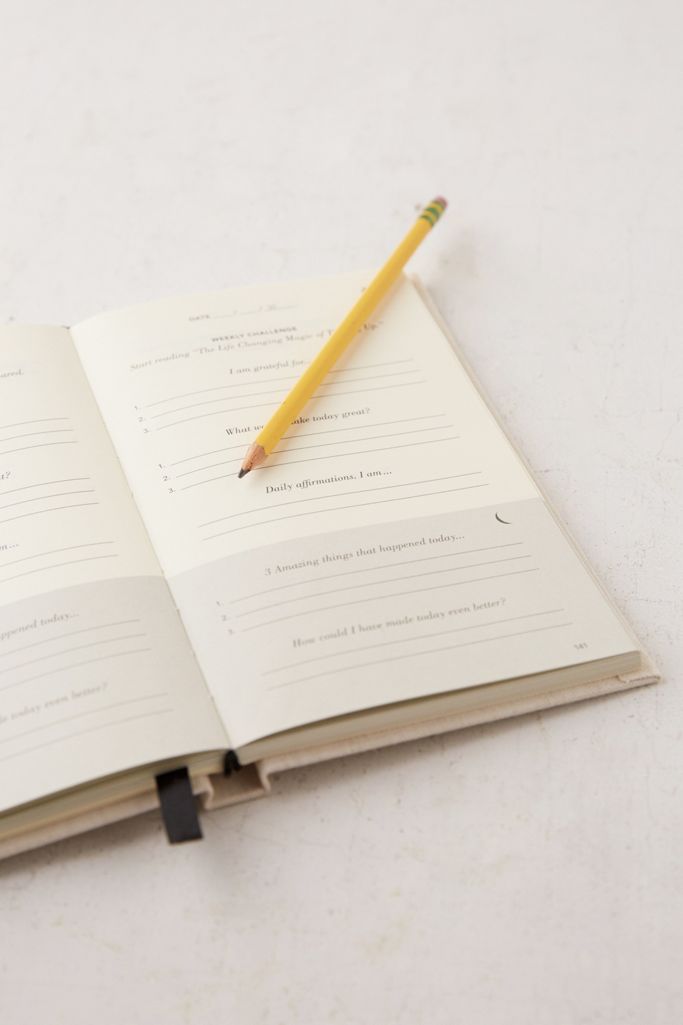 ared.
t?
m...
ppened today...
de today even better?
DATE
WEEKLY CHALLENGE
Start reading "The Life Changing Magic of Up."
I am grateful for...
1.
2.
3.
What ake today great?
1.
2.
3.
Daily affirmations. I am...
3 Amazing things that happened today...
1.
2.
3.
How could I have made today even better?